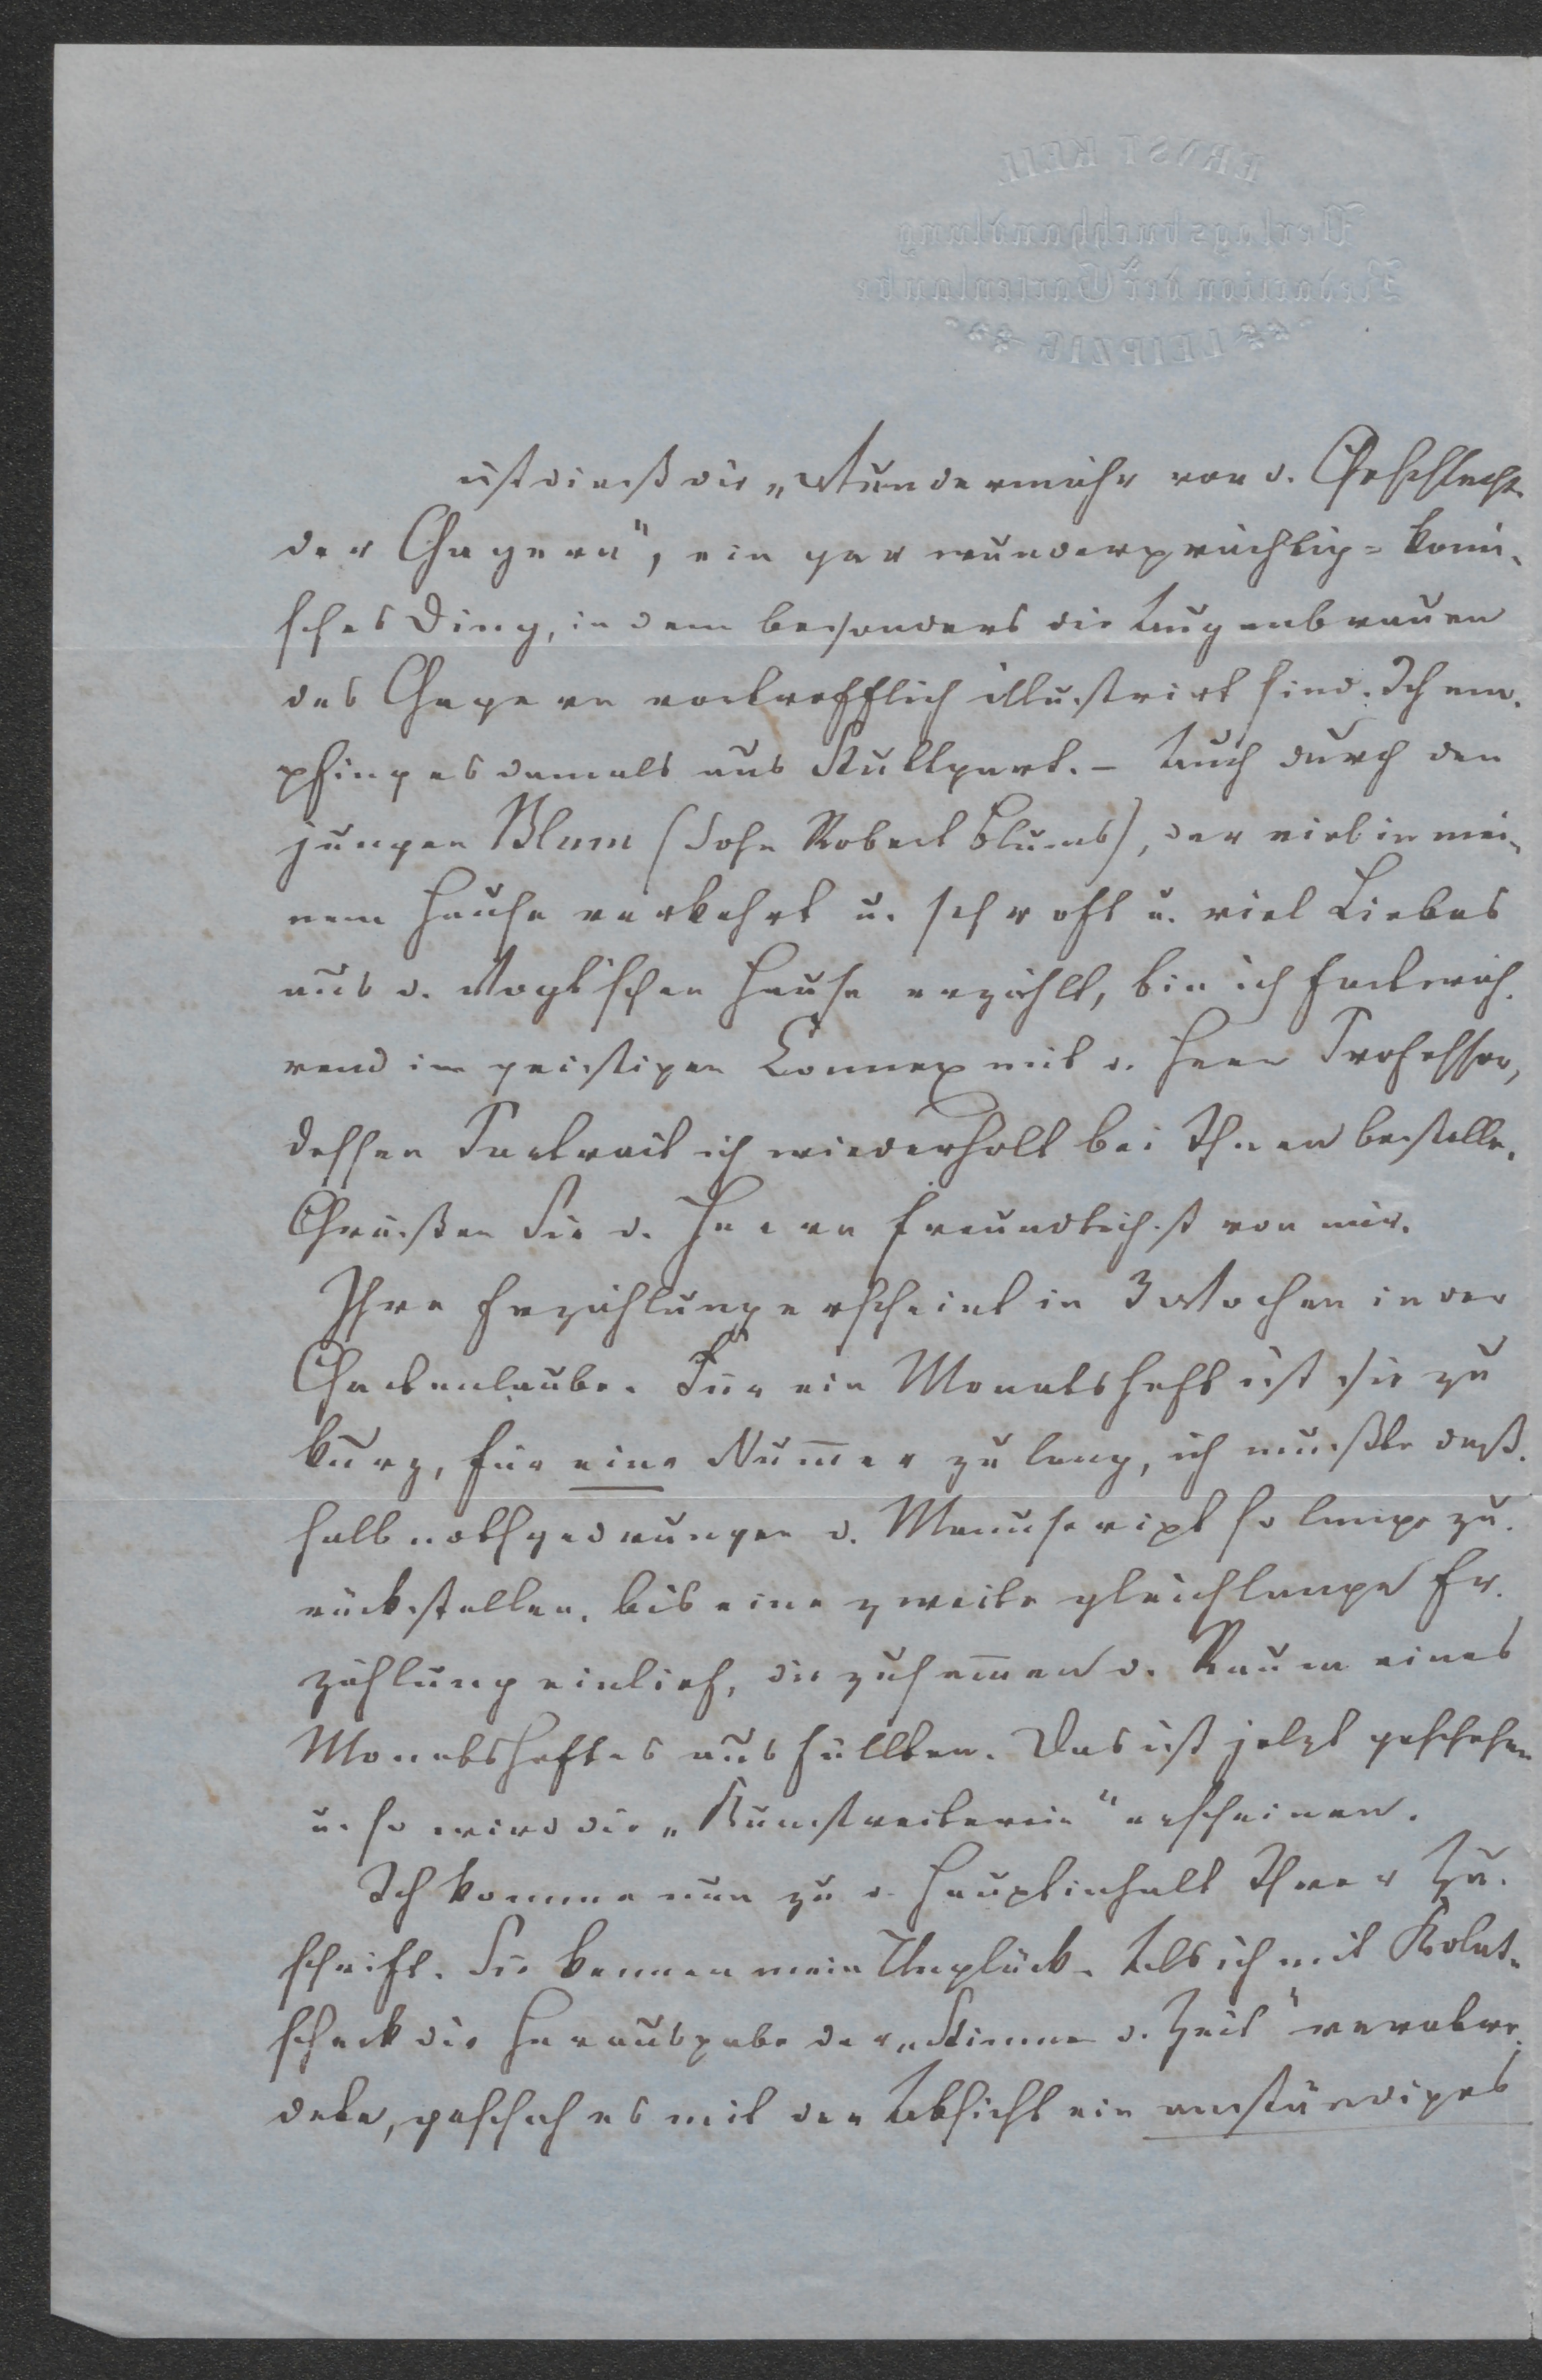 ERNST KEIL
Verlagsbuchhandlung
Redaction der Gartenlaube
LEIPZIG
ist dieß die „Wundermähr von d. Geschlecht
der Gagern", ein gar wunderprächtig=komi-
sches Ding, in dem besonders die Augenbrauen
des Gagern vortrefflich illustrirt sind. Ich em-
pfing es damals aus Stuttgart. – Auch durch den
jungen Blum (Sohn Robert Blums), der viel in mei-
nem Hause verkehrt u. sehr oft u. viel Liebes
aus d. Vogt'schen Hause erzählt, bin ich fortwäh-
rend im geistigen Connex mit d. Herrn Professor,
dessen Portrait ich wiederholt bei Ihnen bestelle.
Grüßen Sie d. Herrn freundlichst von mir.
Ihre Erzählung erscheint in 3 Wochen in der
Gartenlaube. Für ein Monatsheft ist sie zu
kurz, für eine Num̅er zu lang, ich mußte deß-
halb nothgedrungen d. Manuscript so lange zu-
rückstellen, bis eine zweite gleichlange Er-
zählung einlief, die zusam̅en d. Raum eines
Monatsheftes ausfüllten. Das ist jetzt geschehen
u. so wird die „Kunstreiterin" erscheinen.
Ich komme nun zu d. Hauptinhalt Ihrer Zu-
schrift. Sie kennen mein Unglück. Als ich mit Kolat-
scheck die Herausgabe der „Stimmen d. Zeit" verabre-
dete, geschah es mit der Absicht ein anständiges